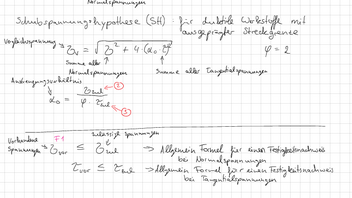 Normalspannungen
Schubspannungshypothese (SH) : für duktile Werkstoffe mit
ausgeprägter Streckgrenze
Vergleichsspannung → σv = √(σ² + 4·(α₀·τ)²)
φ = 2
Summe aller Normalspannungen
Summe aller Tangentialspannungen
Anstrengungsverhältnis
α₀ = σzul / (φ · τzul)
Zulässige Spannungen
Vorhandene Spannungen
F1
σvor ≤ σzul → Allgemein Formel für einen Festigkeitsnachweis
bei Normalspannungen
τvor ≤ τzul → Allgemein Formel für einen Festigkeitsnachweis
bei Tangentialspannungen